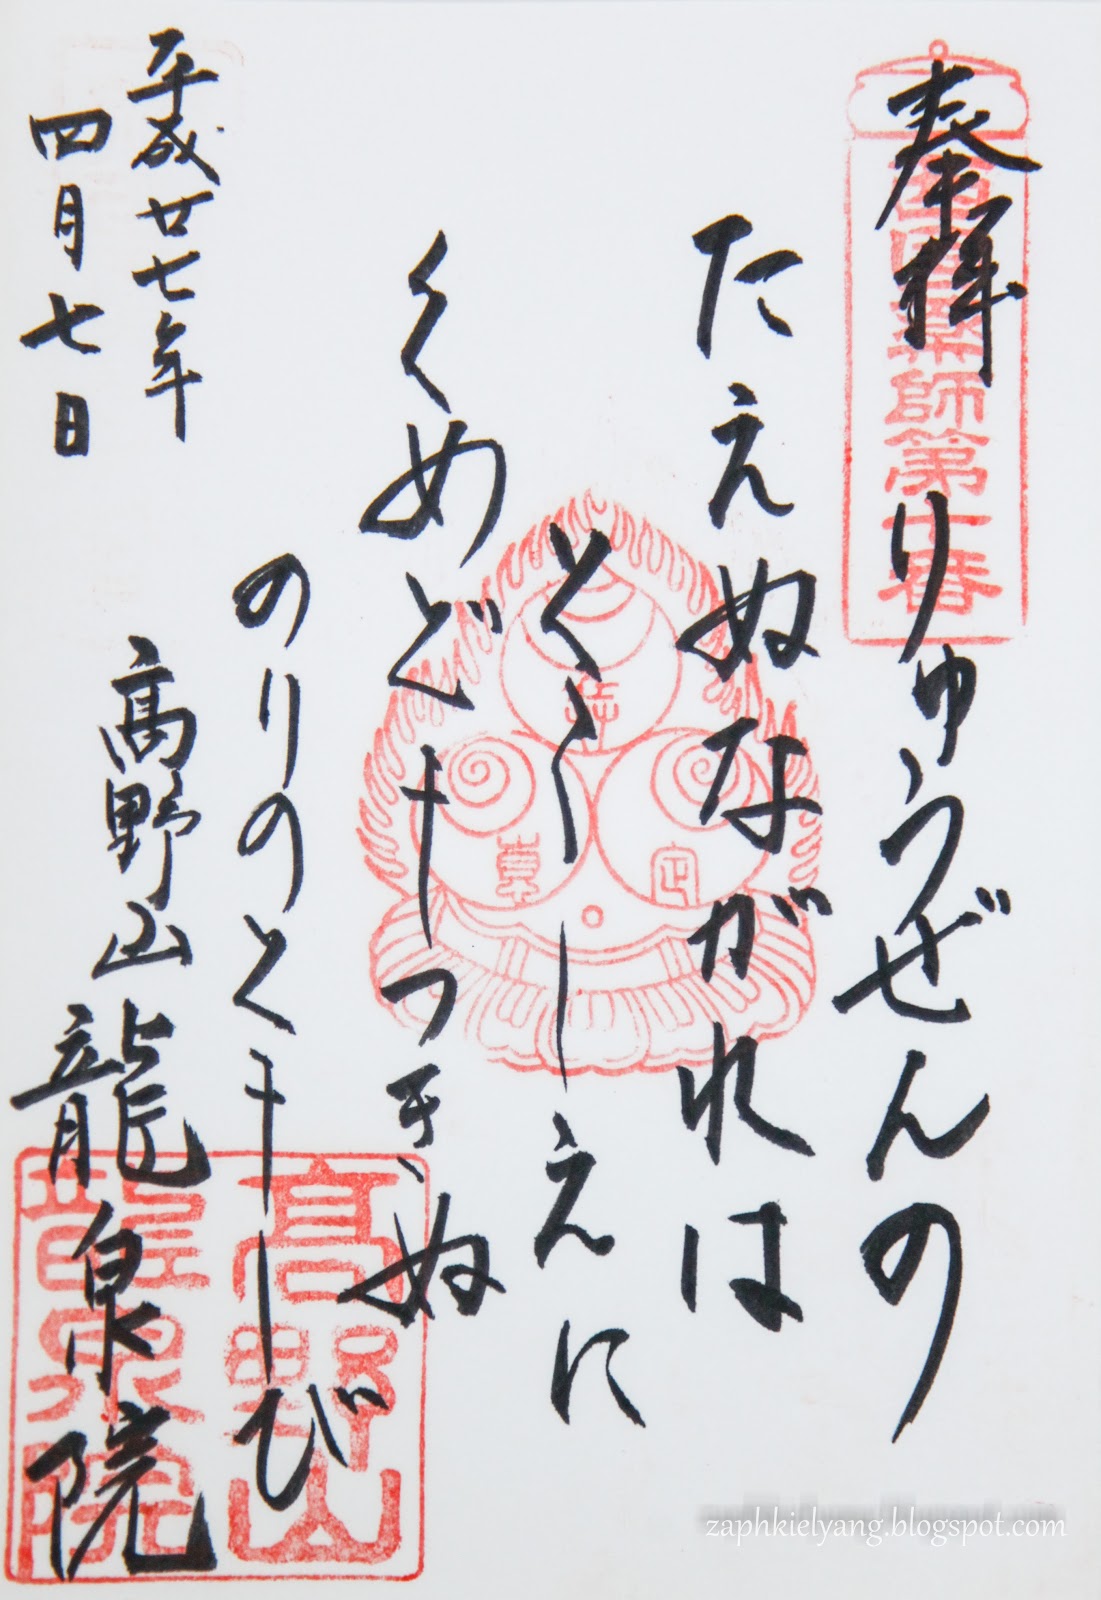 奉拝
西国薬師第十番
りゅうぜんの
たえぬながれは
とこしえに
くめどもつきぬ
のりのともしび
高野山龍泉院
平成廿七年
四月七日
高野山
龍泉院
zaphkielyang.blogspot.com